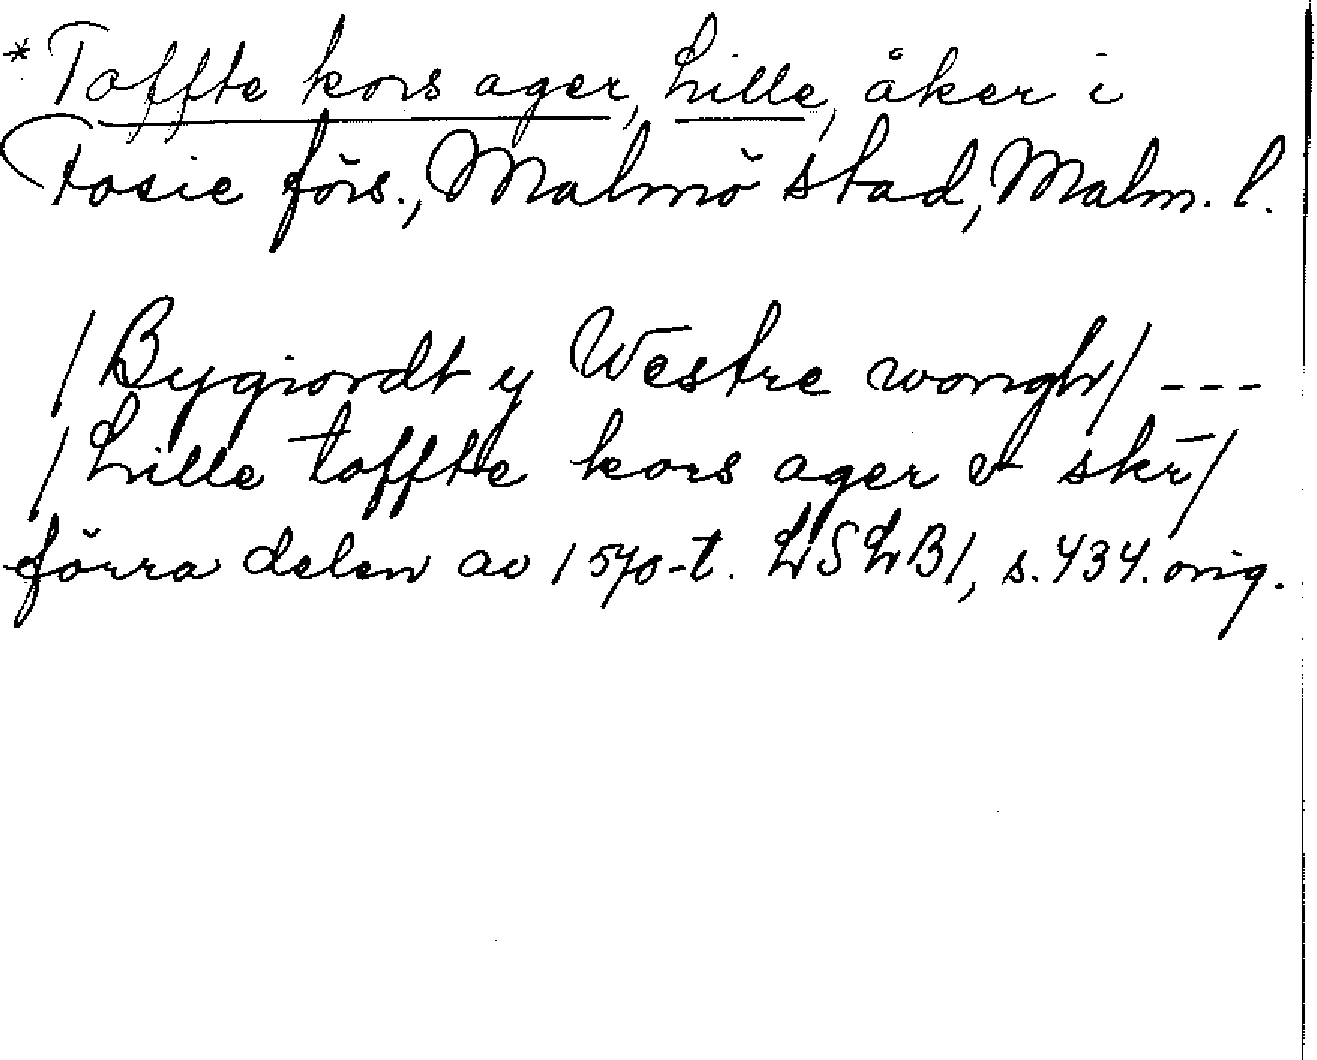 * Toffte kors ager, Lille, åker i
Fosie förs., Malmö stad, Malm. l.
/Bygiordt y Westre wongh/ ---
/Lille toffte kors ager et skr/
förra delen av 1570-t. LSLB1, s. 434. orig.